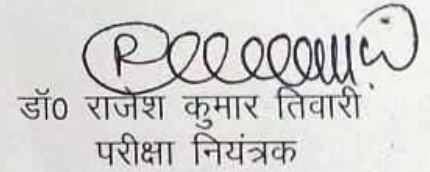 डॉ0 राजेश कुमार तिवारी
परीक्षा नियंत्रक